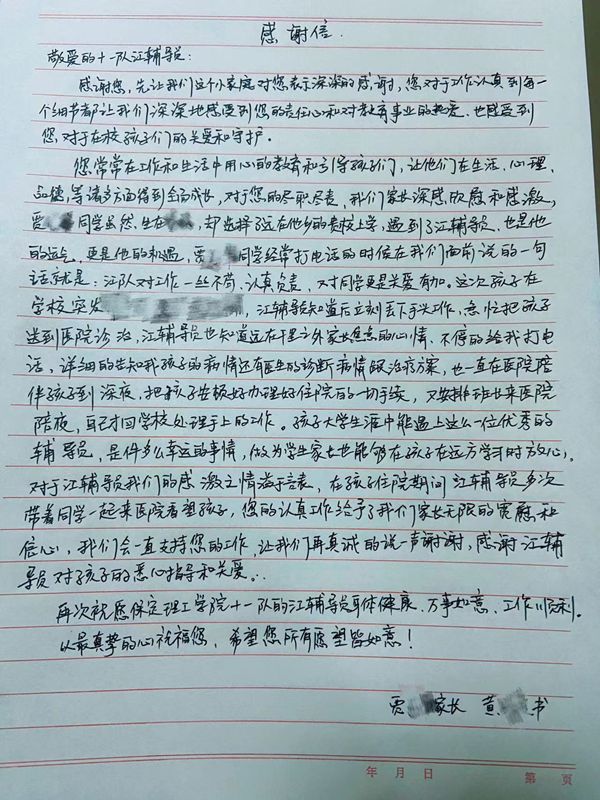 感谢信.
敬爱的十一队江辅导员:
感谢您,先让我们这个小家庭对您表示深深的感谢,您对于工作认真到每一
个细节都让我们深深地感受到您的责任心和对教育事业的热爱、也感受到
您,对于在校孩子们的关爱和守护。
您常常在工作和生活中用心的教育和引导孩子们,让他们在生活、心理、
品德,等诸多方面得到全面成长,对于您的尽职尽责,我们家长深感欣慰和感激,
贾 同学虽然,生在 ,却选择了远在他乡的贵校上学,遇到了江辅导员、也是他
的运气,更是他的机遇,贾 同学经常打电话的时候在我们面前说的一句
话就是:江队对工作一丝不苟、认真负责,对同学更是关爱有加。这次孩子在
学校突发 ,江辅导员知道后立刻丢下手头工作,急忙把孩子
送到医院诊治,江辅导员也知道远在千里之外家长焦急的心情、不停的给我打电
话,详细的告知我孩子的病情还有医生的诊断病情跟治疗方案,也一直在医院陪
伴孩子到深夜,把孩子安极好办理好住院的一切手续,又安排班长来医院
陪夜,自己才回学校处理手上的工作。孩子大学生涯中能遇上这么一位优秀的
辅导员,是件多么幸运的事情,做为学生家长也能够在孩子在远方学习时放心。
对于江辅导员我们的感激之情溢于言表,在孩子住院期间江辅导员多次
带着同学一起来医院看望孩子,您的认真工作给予了我们家长无限的宽慰和
信心,我们会一直支持您的工作,让我们再真诚的说一声谢谢,感谢江辅
导员对孩子的悉心指导和关爱。
再次祝愿保定理工学院十一队的江辅导员身体健康、万事如意、工作顺利。
以最真挚的心祝福您,希望您所有愿望皆如意!
贾 家长 黄 书
年 月 日 第 页